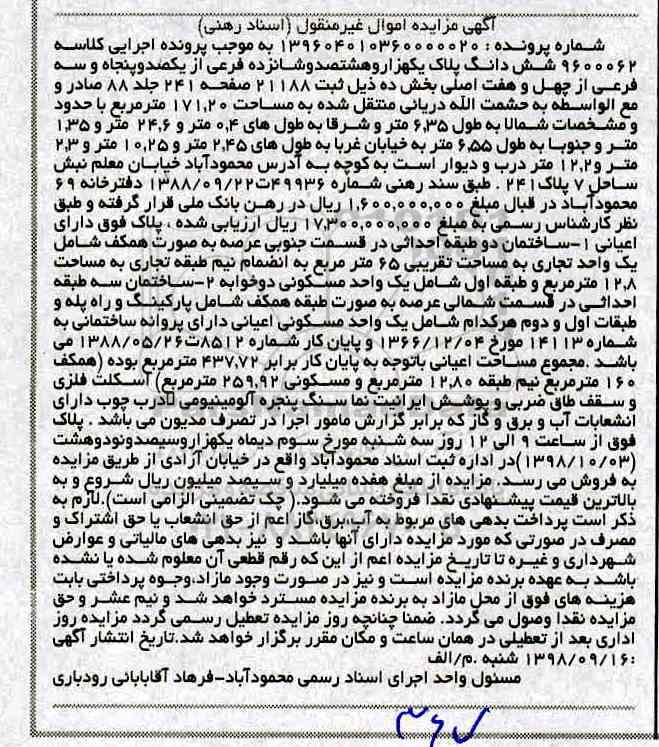 آگهی مزایده اموال غیرمنقول (اسناد رهنی)
شماره پرونده : ۱۳۹۶۰۴۰۱۰۳۶۰۰۰۰۰۲۰ به موجب پرونده اجرایی کلاسه
۹۶۰۰۰۶۲ شش دانگ پلاک یکهزاروهشتصدوشانزده فرعی از یکصدوپنجاه و سه
فرعی از چهل و هفت اصلی بخش ده ذیل ثبت ۲۱۱۸۸ صفحه ۲۴۱ جلد ۸۸ صادر و
مع الواسطه به حشمت الله دریائی منتقل شده به مساحت ۱۷۱,۲۰ مترمربع با حدود
و مشخصات شمالا به طول ۶,۳۵ متر و شرقا به طول های ۰,۴ متر و ۲۴,۶ متر و ۱,۳۵
متر و جنوبا به طول ۶,۵۵ متر به خیابان غربا به طول های ۲,۴۵ متر و ۱۰,۲۵ متر و ۲,۳
متر و ۱۲,۲ متر درب و دیوار است به کوچه به آدرس محمودآباد خیابان معلم نبش
ساحل ۷ پلاک ۲۴۱ . طبق سند رهنی شماره ۴۹۹۳۶ت۱۳۸۸/۰۹/۲۲ دفترخانه ۶۹
محمودآباد در قبال مبلغ ۱,۶۰۰,۰۰۰,۰۰۰ ریال در رهن بانک ملی قرار گرفته و طبق
نظر کارشناس رسمی به مبلغ ۱۷,۳۰۰,۰۰۰,۰۰۰ ریال ارزیابی شده ، پلاک فوق دارای
اعیانی ۱-ساختمان دو طبقه احداثی در قسمت جنوبی عرصه به صورت همکف شامل
یک واحد تجاری به مساحت تقریبی ۶۵ متر مربع به انضمام نیم طبقه تجاری به مساحت
۱۲,۸ مترمربع و طبقه اول شامل یک واحد مسکونی دوخوابه ۲-ساختمان سه طبقه
احداثی در قسمت شمالی عرصه به صورت طبقه همکف شامل پارکینگ و راه پله و
طبقات اول و دوم هرکدام شامل یک واحد مسکونی اعیانی دارای پروانه ساختمانی به
شماره ۱۴۱۱۳ مورخ ۱۳۶۶/۱۲/۰۴ و پایان کار شماره ۸۵۱۲ت۱۳۸۸/۰۵/۲۶ می
باشد .مجموع مساحت اعیانی باتوجه به پایان کار برابر ۴۳۷,۷۲ مترمربع بوده (همکف
۱۶۰ مترمربع نیم طبقه ۱۲,۸۰ مترمربع و مسکونی ۲۵۹,۹۲ مترمربع) اسکلت فلزی
و سقف طاق ضربی و پوشش ایرانیت نما سنگ پنجره آلومینیومی درب چوب دارای
انشعابات آب و برق و گاز که برابر گزارش مامور اجرا در تصرف مدیون می باشد . پلاک
فوق از ساعت ۹ الی ۱۲ روز سه شنبه مورخ سوم دیماه یکهزاروسیصدونودوهشت
(۱۳۹۸/۱۰/۰۳)در اداره ثبت اسناد محمودآباد واقع در خیابان آزادی از طریق مزایده
به فروش می رسد. مزایده از مبلغ هفده میلیارد و سیصد میلیون ریال شروع و به
بالاترین قیمت پیشنهادی نقدا فروخته می شود.( چک تضمینی الزامی است).لازم به
ذکر است پرداخت بدهی های مربوط به آب،برق،گاز اعم از حق انشعاب یا حق اشتراک و
مصرف در صورتی که مورد مزایده دارای آنها باشد و نیز بدهی های مالیاتی و عوارض
شهرداری و غیره تا تاریخ مزایده اعم از این که رقم قطعی آن معلوم شده یا نشده
باشد به عهده برنده مزایده است و نیز در صورت وجود مازاد،وجوه پرداختی بابت
هزینه های فوق از محل مازاد به برنده مزایده مسترد خواهد شد و نیم عشر و حق
مزایده نقدا وصول می گردد. ضمنا چنانچه روز مزایده تعطیل رسمی گردد مزایده روز
اداری بعد از تعطیلی در همان ساعت و مکان مقرر برگزار خواهد شد.تاریخ انتشار آگهی
:۱۳۹۸/۰۹/۱۶ شنبه .م/الف
مسئول واحد اجرای اسناد رسمی محمودآباد-فرهاد آقابابائی رودباری